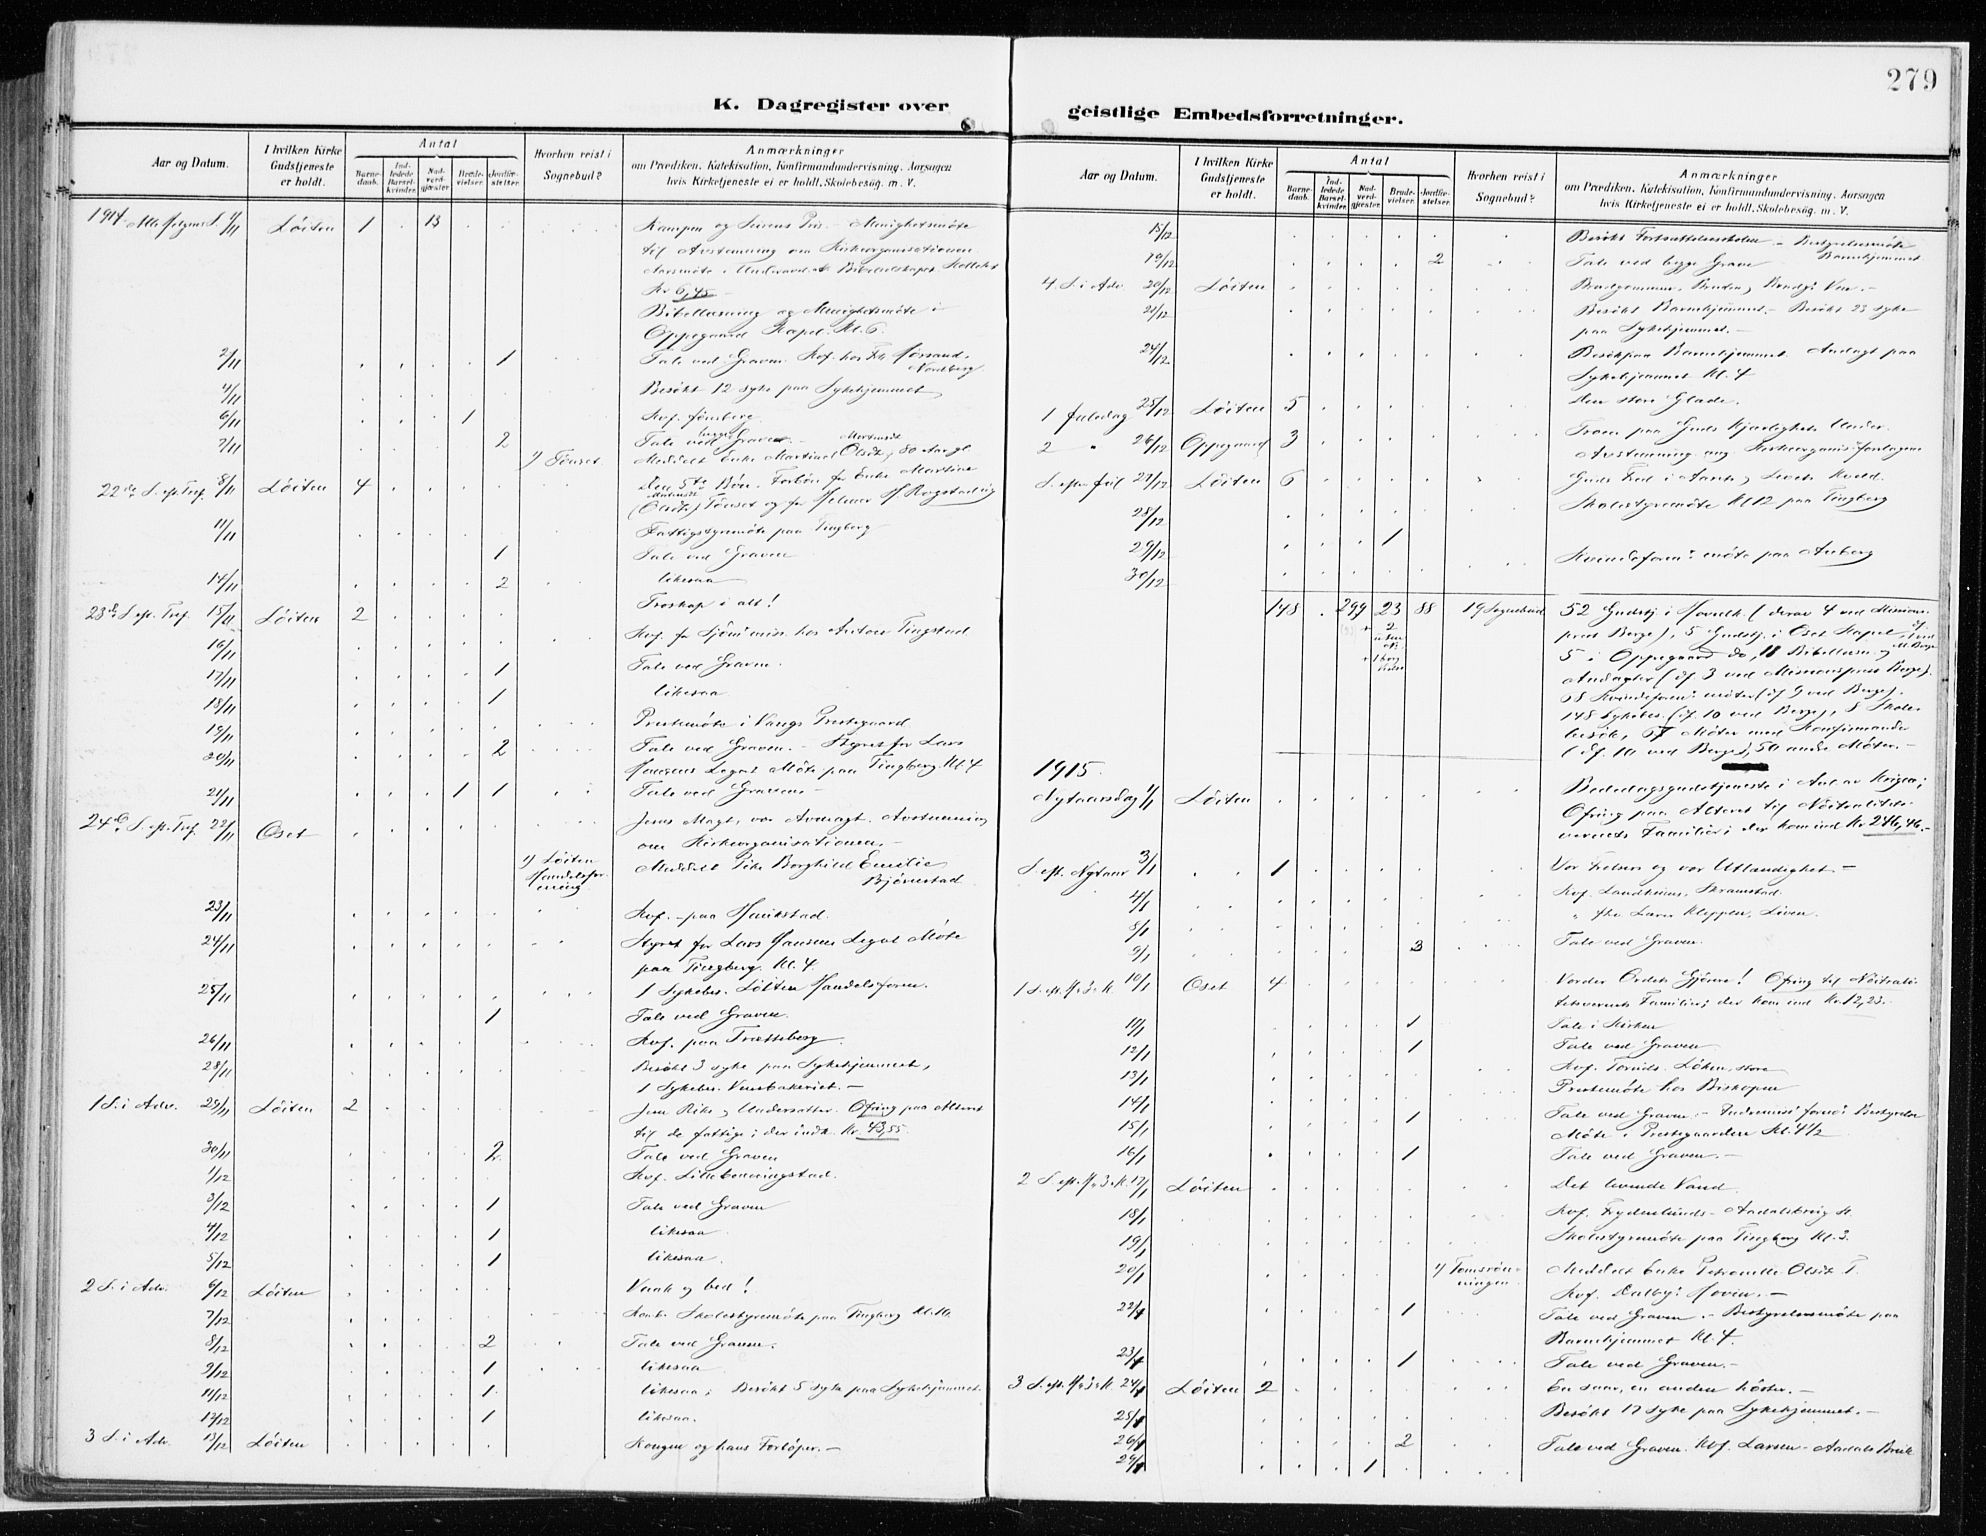 279
K. Dagregister over
geistlige Embedsforretninger.
Aar og Datum.
I hvilken Kirke Gudstjeneste er holdt.
Antal
Barne-daab.
Ind-ledede Barsel-kvinder.
Nad-verd-gjæster.
Brude-vielser.
Jordfæ-stelser.
Hvorhen reist i Sognebud?
Anmærkninger
om Prædiken, Katekisation, Konfirmandundervisning, Aarsagen
hvis Kirketjeneste ei er holdt, Skolebesøg. m. V.
1914 Alle Helgens S. 1/11 Löiten 1 13 Kampen og Seirens Pris. - Menighetsmöte
til Avstemning om Kirkeorganisationen
Kr 6,45
Bibellæsning og Menighetsmöte i
Oppegaard Kapel. Kl. 6.
2/11 1 Tale ved Graven.
4/11 Besökt 12 syke paa Sykehjemmet
6/11 1 Kvf. Jönsberg
7/11 2 Tale ved begge Grave -
1) Tönset. Meddelt Enke
22de S. eft. Tref. 8/11 Löiten 4 Den 5te Bön. Forbön for Enke Martine
11/11 Fattigstyremöte paa Tingberg
1 Tale ved Graven
14/11 2 likesaa
23de S. eft. Tref. 15/11 Löiten 2 Troskap i alt!
16/11 Kvf. for Sjömannsm. hos Anton Tingstad
17/11 1 Tale ved Graven.
18/11 1 likesaa
19/11 Prestemöte i Vangs Prestegaard
20/11 2 Tale ved Graven. - Styret for Lars
Hansens Legat Möte paa Tingberg Kl. 4
21/11 1 1 Tale ved Graven
24de S. eft. Tref. 22/11 Oset Jesus Magt, vor Avmagt. Avstemning
om Kirkeorganisationen. -
1) Löiten Handelsforening Meddelt Pike Borghild Emilie
Bjørnstad
23/11 Kvf. - paa Haukstad.
24/11 Styret for Lars Hansens Legat Möte
paa Tingberg. Kl. 4.
25/11 1 Sykebes. Löiten Handelsforen.
1 Tale ved Graven.
26/11 Kvf. paa Trætteberg
28/11 Besökt 3 syke paa Sykehjemmet,
1 Sykebes.
1 S. i Adv. 29/11 Löiten 2 Jesu Rike og Undersaatter. Ofring paa Alteret
til de fattige; der indk. Kr. 43,55.
30/11 2 Tale ved Graven
1/12 Kvf.
3/12 1 Tale ved Graven
4/12 1 likesaa
5/12 1 likesaa
2 S. i Adv. 6/12 Löiten Vaak og bed!
7/12 Skolestyremöte paa Tingberg Kl. 10.
8/12 2 Tale ved Graven.
9/12 1 likesaa
11/12 1 likesaa; Besökt 5 syke paa Sykehjemmet.
12/12 1 likesaa.
3 S. i Adv. 13/12 Löiten Kongen og hans Forlöper. -
Aar og Datum.
I hvilken Kirke Gudstjeneste er holdt.
Antal
Barne-daab.
Ind-ledede Barsel-kvinder.
Nad-verd-gjæster.
Brude-vielser.
Jordfæ-stelser.
Hvorhen reist i Sognebud?
Anmærkninger
om Prædiken, Katekisation, Konfirmandundervisning, Aarsagen
hvis Kirketjeneste ei er holdt, Skolebesøg. m. V.
15/12 Besökt Fortsættelsesskolen - Bestyrelsesmöte
Barnehjemmet
19/12 2 Tale ved begge Grave
4 S. i Adv. 20/12 Löiten Brudgommen, Bruden, Brudg's Ven. -
21/12 Besökt Barnehjemmet. - Besökt 23 syke
paa Sykehjemmet. -
24/12 Besök paa Barnehjemmet. Andagt paa
Sykehjemmet Kl. 4
1 Juledag 25/12 Löiten 5 Den store Glæde.
2 " 26/12 Oppegaard 3 Troen paa Guds Kjærligheds Under.
Avstemning ang. Kirkeorganis. forslagene
S. eft. Jul 27/12 Löiten 6 Guds Fred i Aarets og Livets Kveld.
28/12 Skolestyremöte Kl 12 paa Tingberg
29/12 1
30/12 Kvindeforen.s möte paa Aaberg
148 . 299 23 88 19 Sognebud 52 Gudstj. i Hovedk. (derav 4 ved Missions-
prest Berge), 5 Gudstj. i Oset Kapel,
5 i Oppegaard do, 11 Bibellæsn. og
Andagter (df. 3 ved Missionsprest Berge).
68 Kvindeforen. möter (df 9 ved Berge).
148 Sykebes. (df. 10 ved Berge), 8 Skole-
besök, 67 Möter med Konfirmander
(df. 10 ved Berge), 50 andre Möter. -
1915.
Nytaarsdag 1/1 Löiten Bededagsgudstjeneste i Anl. av Krigen;
Ofring paa Alteret til Nöitralitets-
vernets Familier; der kom ind Kr 246,46. -
S. eft. Nytaar 3/1 1 Vor Frelser og vor Utlændighet. -
4/1 Kvf. Landheims, Skramstad.
8/1 " fhv. Lars Kleppen, Liven.
9/1 3 Tale ved Graven.
1 S. eft. H. 3 K. 10/1 Oset 4 Vorder Ordets Gjörere! Ofring til Nöitrali-
tetsvernets Familier; der kom ind Kr. 12,23. -
11/1 1 Tale i Kirken
12/1 1 Tale ved Graven
13/1 Kvf. Löken, store
14/1 Prestemöte hos Biskopen
15/1 1 Tale ved Graven. - Indremis. foren.s Bestyrelse
Möte i Prestegaarden Kl. 4 1/2
16/1 1 Tale ved Graven. -
2 S. eft. H. 3 K. 17/1 Löiten Det levende Vand.
18/1 Kvf. Frydenlunds - Aadalsbruig St.
19/1 Skolestyremöte paa Tingberg Kl. 3.
20/1 1) Tomsrön-ningen. Meddelt Enke Petronelle Olsdt. T.
Kvf. Dalby: Hovin. -
22/1 1 Tale ved Graven - Bestyrelsesmöte paa
Barnehjemmet Kl. 4
23/1 1 Tale ved Graven. -
3 S. eft. H. 3 K. 24/1 Löiten 2 En saar, en anden höster. -
25/1 Besökt 17 syke paa Sykehjemmet. -
26/1 2 Tale ved Graven. Kvf. Larsen - Aadals Bruk
1